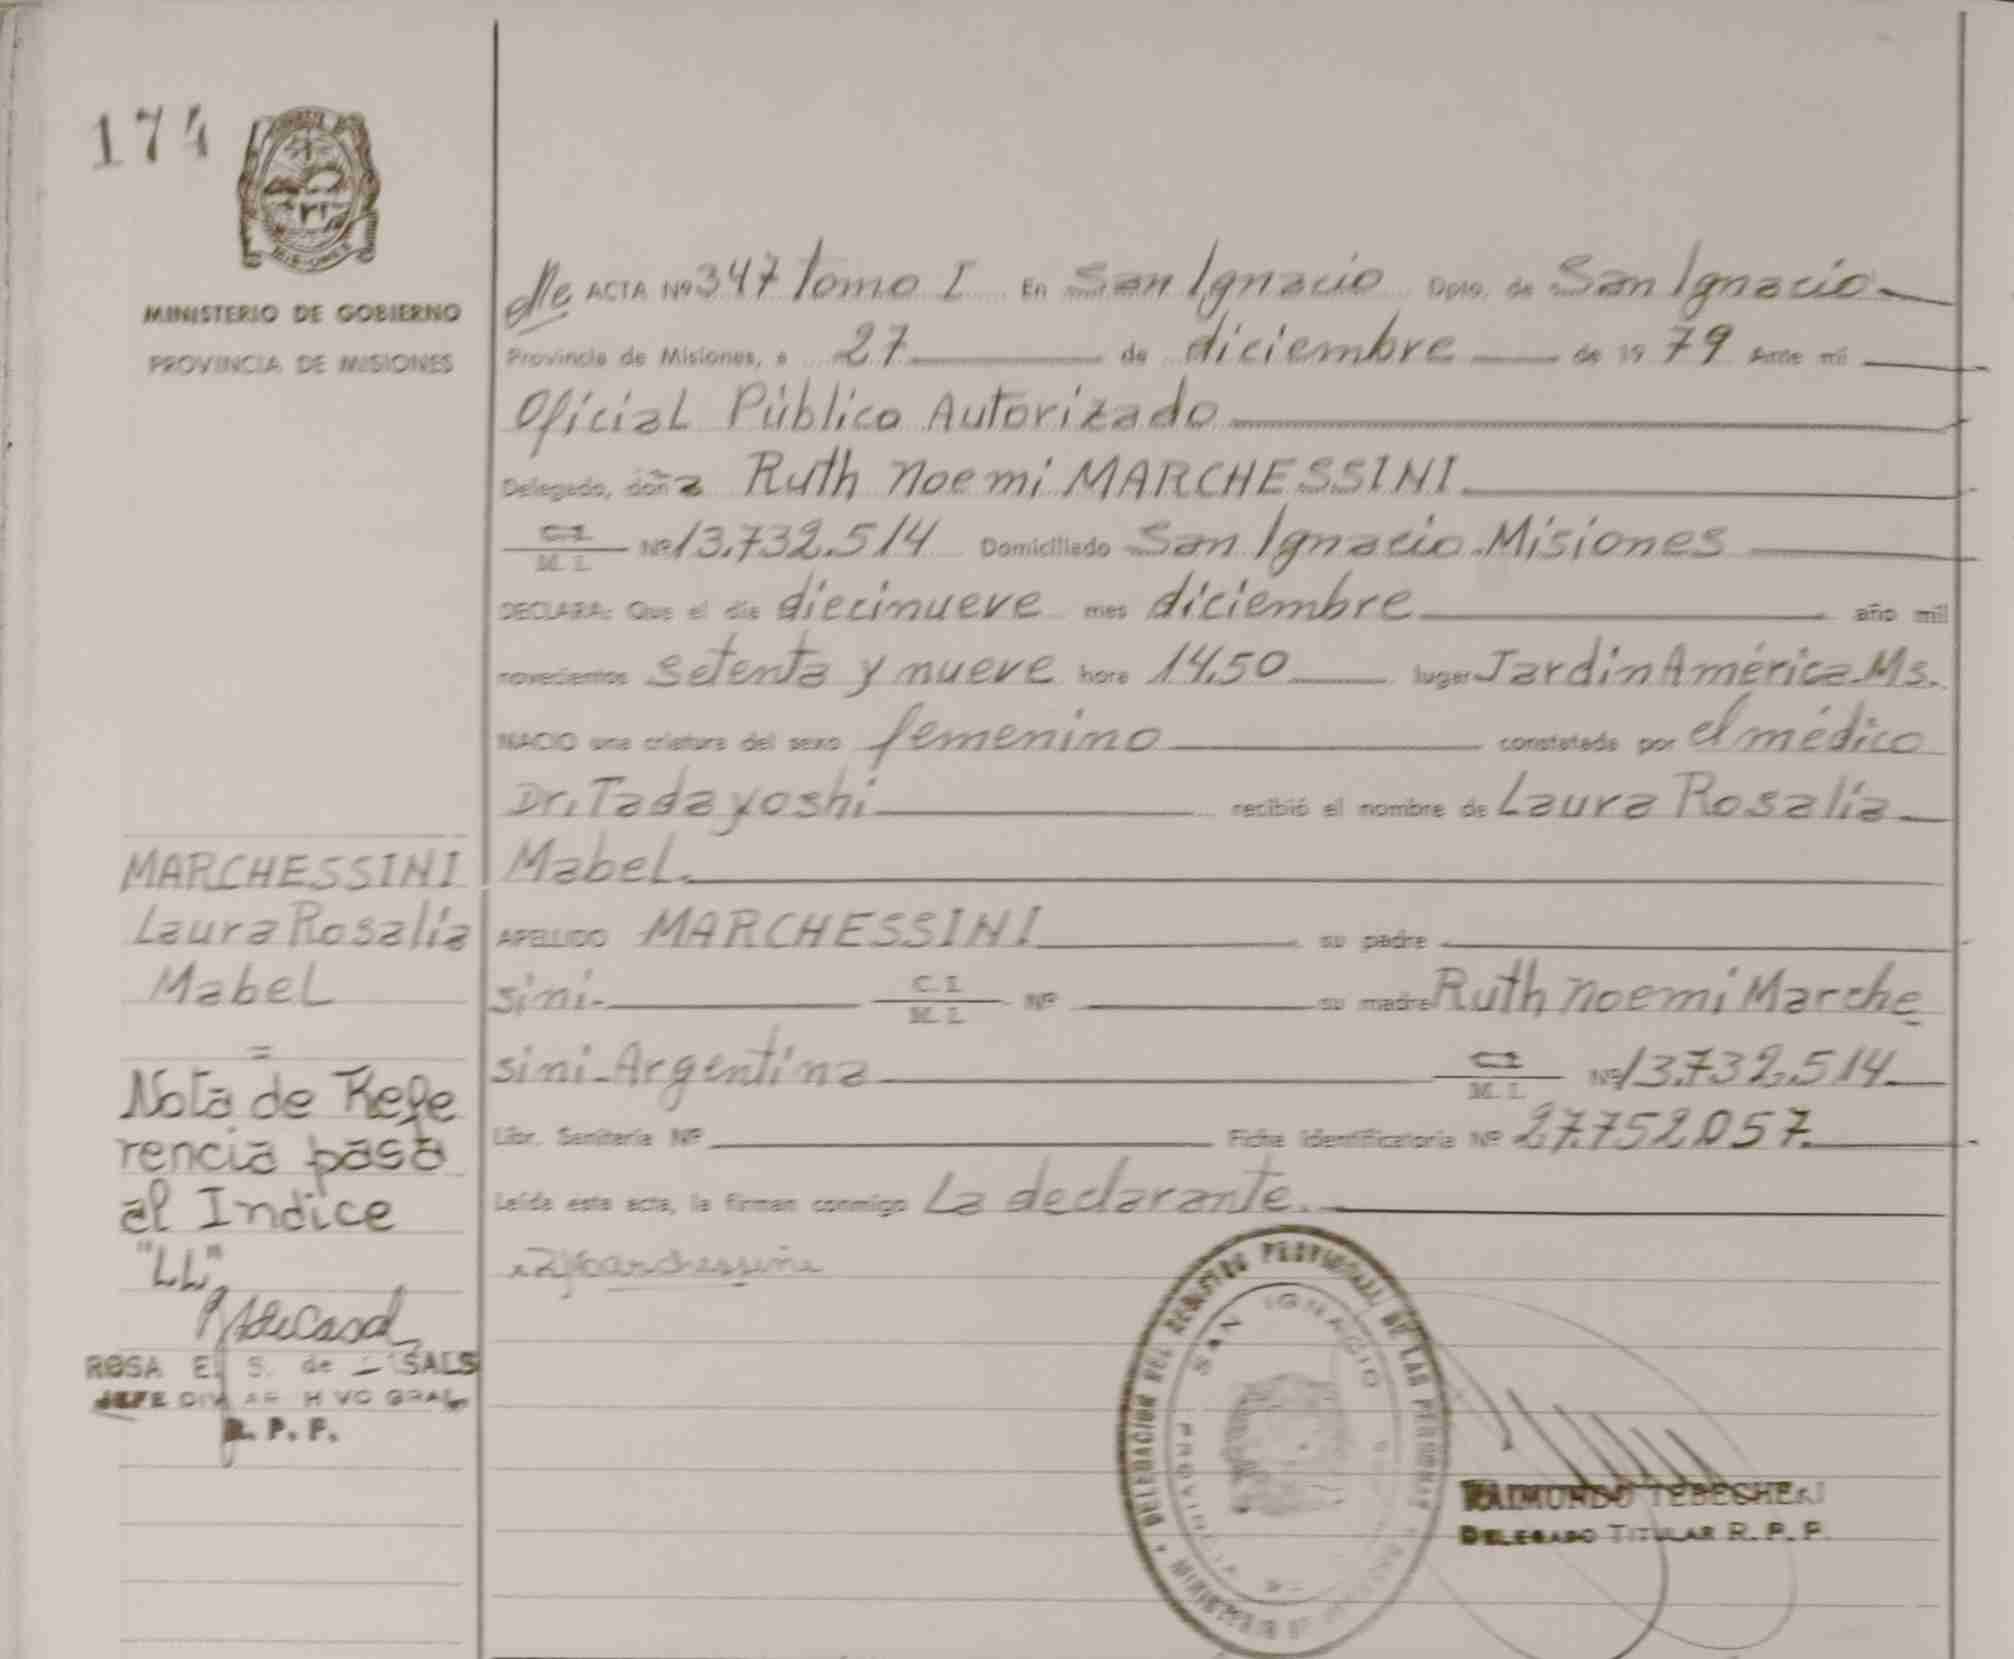 174
MISIONES
MINISTERIO DE GOBIERNO
PROVINCIA DE MISIONES
MARCHESSINI
Laura Rosalía
Mabel
=
Nota de Refe
rencia pasa
al Indice
"LL"
ROSA E. S. de SALS
JEFE DIV AR H VO GRAL
R. P. P.
ACTA Nº 347 Tomo I En San Ignacio Dpto. de San Ignacio
Provincia de Misiones, a 27 de diciembre de 19 79 Ante mi
Oficial Público Autorizado
Delegado, doña Ruth Noemi MARCHESSINI
C.I. M. I. Nº 13.732.514 Domiciliado San Ignacio-Misiones
DECLARA: Que el día diecinueve mes diciembre año mil
novecientos setenta y nueve hora 14.50 lugar Jardín América Ms.
NACIO una criatura del sexo femenino constatada por el médico
Dr. Tadayoshi recibió el nombre de Laura Rosalía
Mabel.
APELLIDO MARCHESSINI su padre
sini- C. I. M. I. Nº su madre Ruth Noemi Marche
sini-Argentina C.I. M. I. Nº 13.732.514
Libr. Sanitaria Nº Ficha Identificatoria Nº 27.752.057.
Leída esta acta, la firman conmigo La declarante.
DELEGACION DEL REGISTRO PROVINCIAL DE LAS PERSONAS
SAN IGNACIO
RAIMUNDO
DELEGADO TITULAR R. P. P.